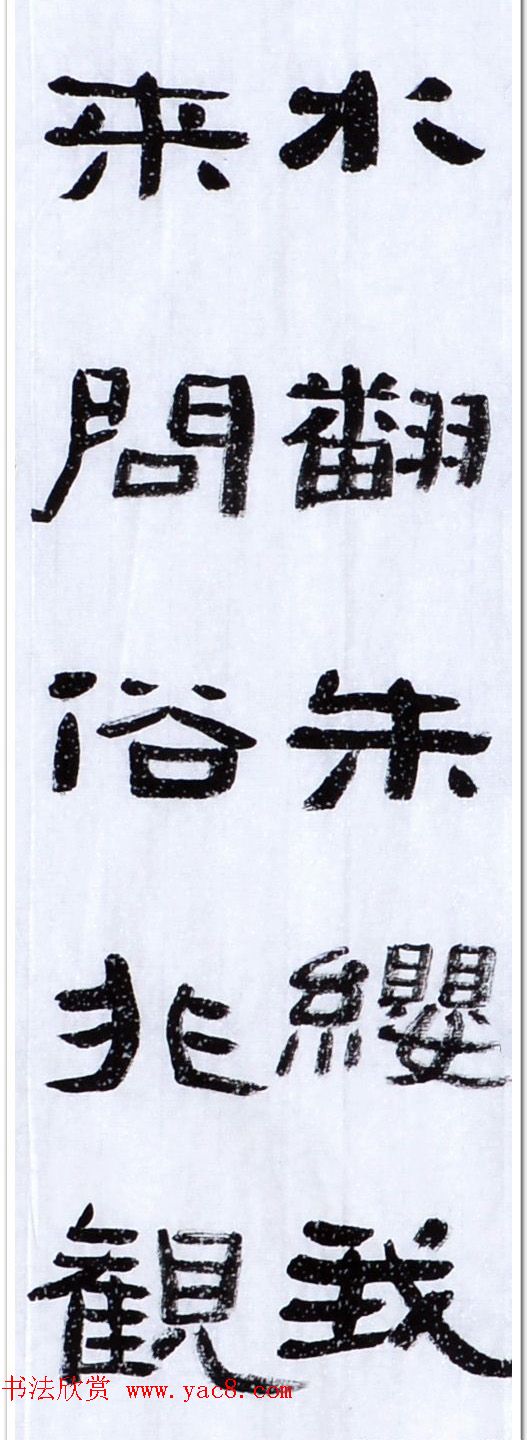 水翻朱纓我
来問俗非觀
书法欣赏 www.yac8.com